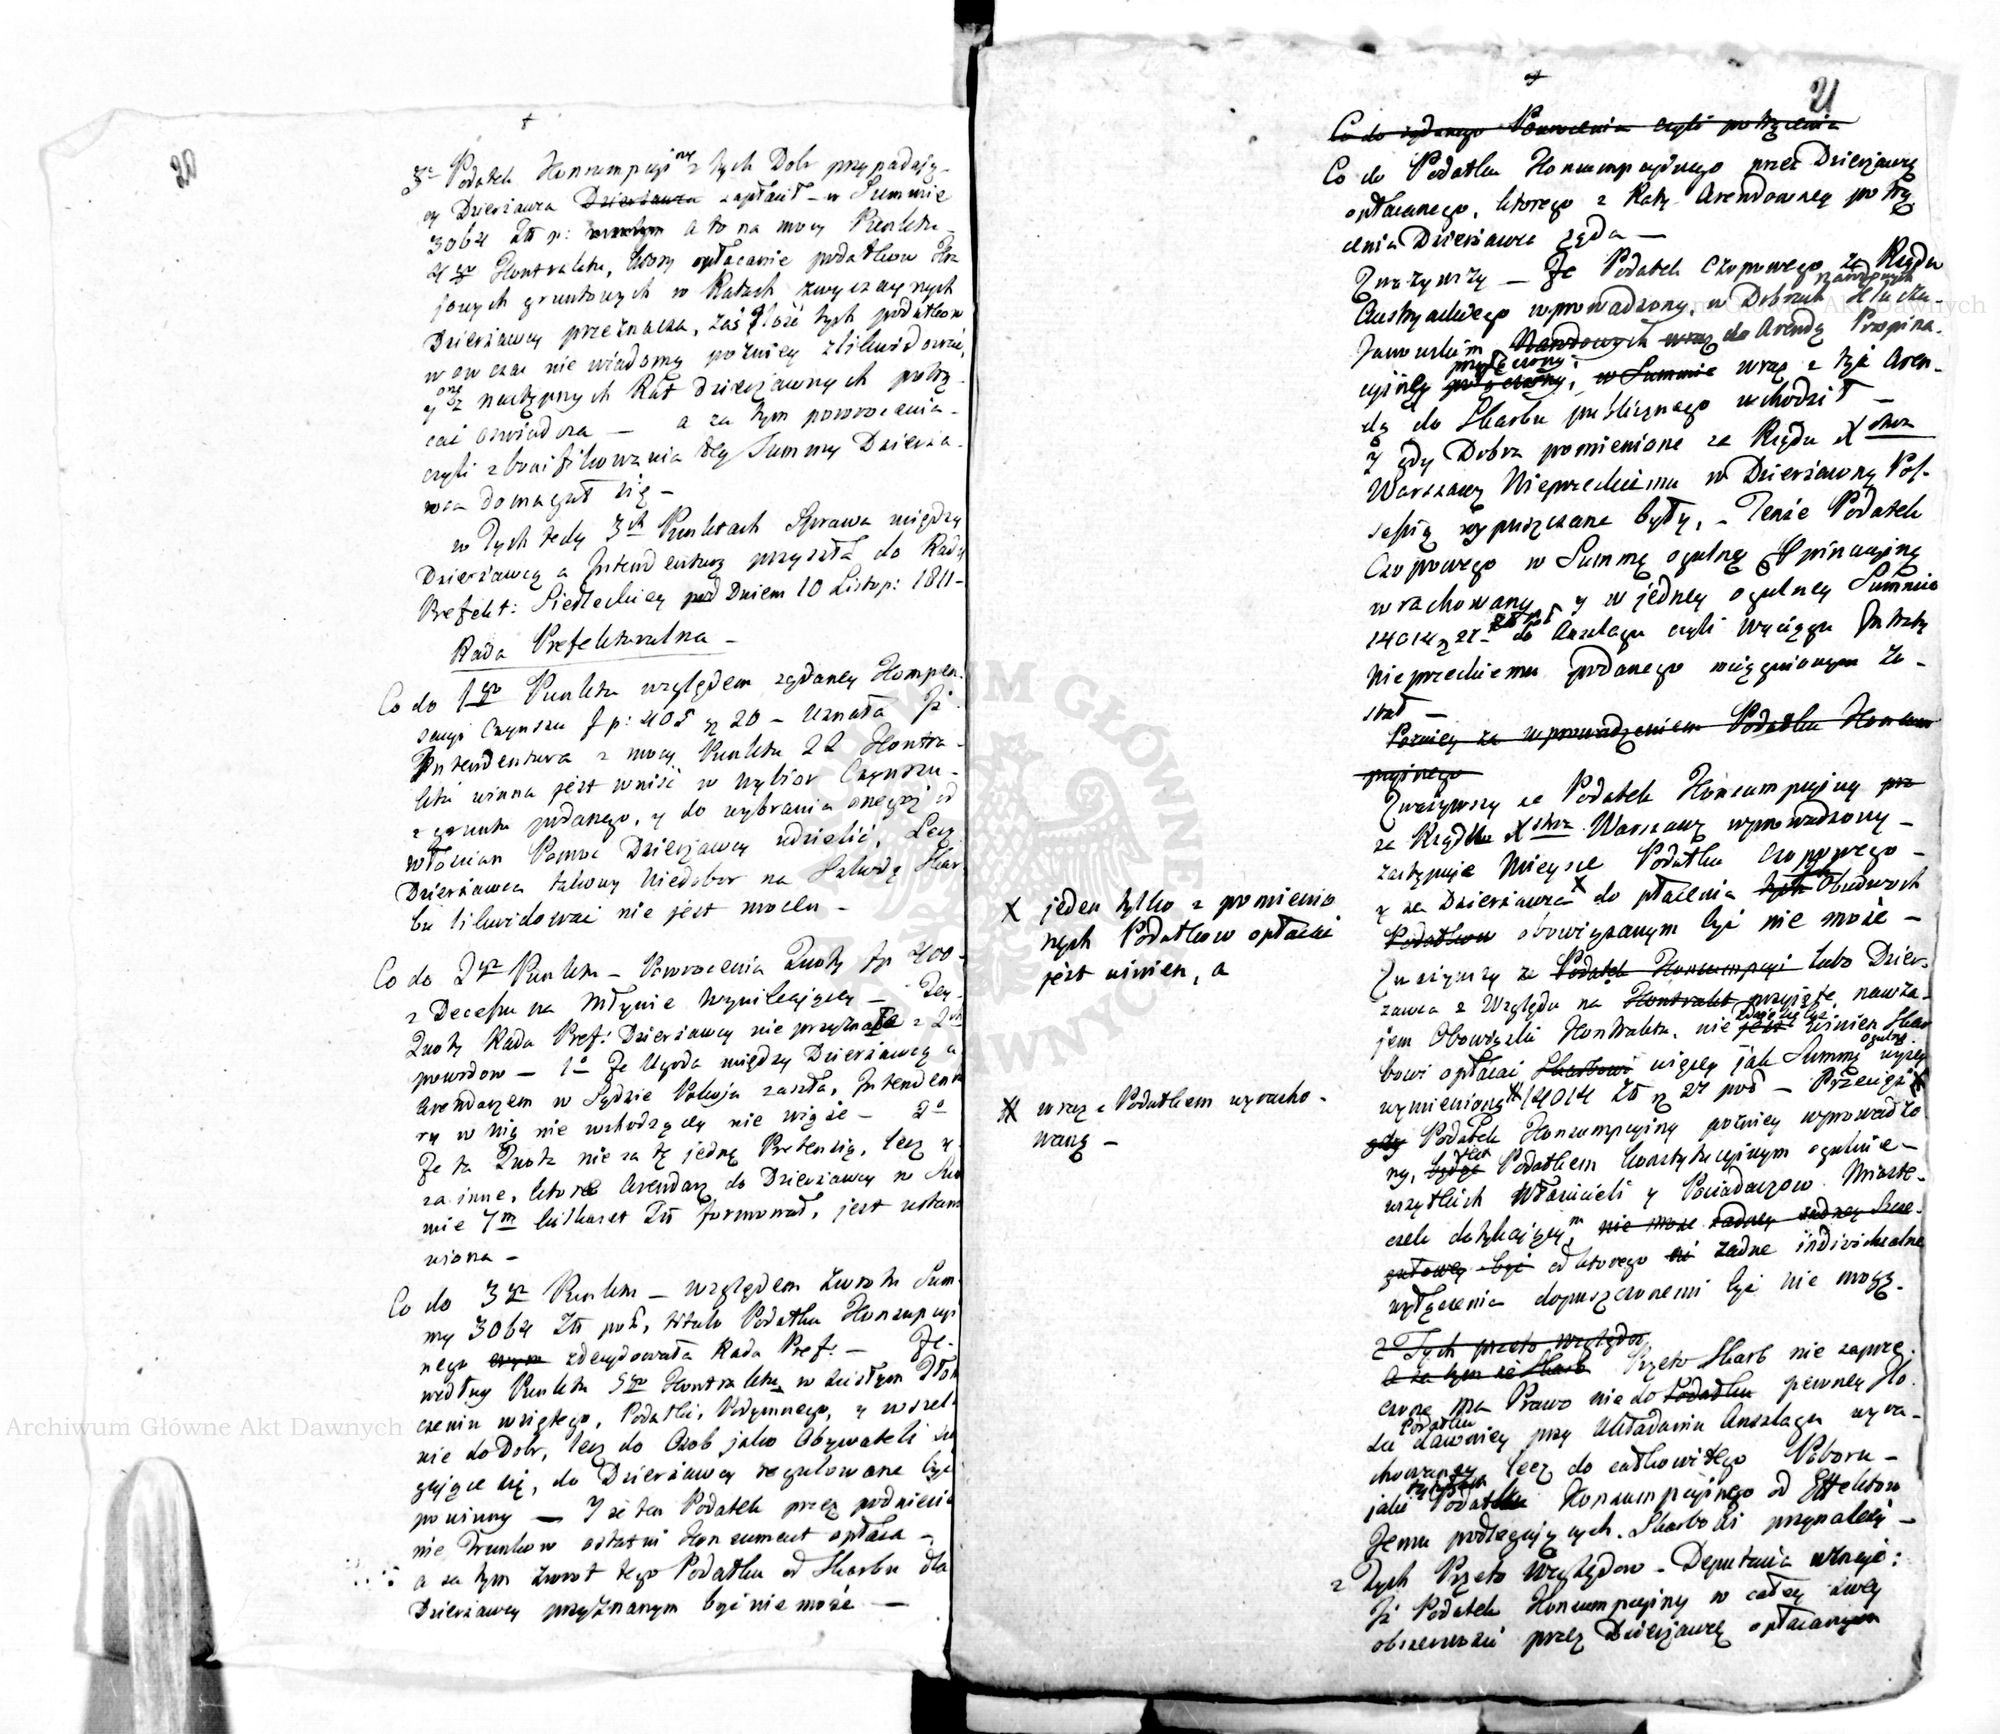 20
3o Podatek Konsumpcyiny z tych Dobr przypadaią-
cy Dzierżawca Dzierżawca zapłacił – w Summie
3064 Zł p: a to na mocy Punktu
4go Kontraktu, ktory opłacanie podatkow Kra
iowych gruntowych w Ratach zwyczaynych
Dzierżawcy przeznacza, zaś ilość tych podatkow
wowczas nie wiadomą pozniey zlikwidować,
y oną z następnych Rat dzierżawnych potrą-
cać oswiadcza — a za tym powrocenia
czyli zbonifikowania tey Summy Dzierża-
wca domagał się –
w Tych tedy 3ch Punktach Sprawa między
Dzierżawcą a Intendenturą przyszła do Rady
Prefekt: Siedleckiey pod Dniem 10 Listop: 1811 –
Rada Prefekturalna –
Co do 1go Punktu względem rządaney Kompen-
sacyi Czynszu f p: 405 g 20 – Uznała Iż
Intendentura z mocy Punktu 22 Kontra-
ktu winna iest wniść w wybior Czynszu –
z gruntu podanego, y do wybrania onegoż od
włościan Pomoc Dzierżawcy udzielić, Lecz
Dzierżawca takowy Niedobor na Szkodę Skar-
bu likwidować nie iest mocen –
Co do 2go Punktu – Powrocenia Kwoty fp 400 –
z Decessu na Młynie wynikaiącey – Tey
Kwoty Rada Pref: Dzierżawcy nie przyznała z 2ch
powodow – 1o Że Ugoda między Dzierżawcą a
Arendarzem w Sądzie Pokoju zaszła, Intendentu
ry w nią nie wchodzącey nie wiąże – 2o
Że ta Kwota nie za tę iedną Pretensią, lecz y
za inne, ktore Arendarz do Dzierżawcy w Sum
mie 7m kilkaset Zł formował, iest ustano
wiona –
Co do 3go Punktu – względem zwrotu Sum
my 3064 Zł pol, titulo Podatku Konsumpcyi
nego zdecydowała Rada Pref: – Że
według Punktu 5go Kontraktu w scisłym Tłom
czeniu wziętego, Podatki, Podymnego, y wszel
nie do Dobr, lecz do Osob iako Obywateli scią
gaiące się, do Dzierżawcy regulowane być
powinny — I że ten Podatek przez podniesie
nie Trunkow ostatni Konsument opłaca –
a za tym zwrot tego Podatku od Skarbu dla
Dzierżawcy przyznanym być nie może —
21
Co do rządanego Powrocenia czyli potrącenia
Co do Podatku Konsumpcyinego przez Dzierżawcę
opłacanego, ktorego z Raty Arendowney potrą
cenia Dzierżawca rząda —
Zważywszy – Że Podatek Czopowego za Rządu
Austryackiego wprowadzony, w Dobrach Narodowych Kluczku
Janowskim Narodowych wraz do Arendy Propina-
cyiney przyłączony, w Summie wraz z tąż Aren-
dą do Skarbu publicznego wchodził –
Y gdy Dobra pomienione za Rządu Xstwa
Warszaws: Nieprzeckiemu w Dzierżawną Pos-
sessią wypuszczane były, – Tenże Podatek
Czopowego w Summę ogulną Propinacyiną
wrachowany, y w iedney ogulney Summie
14014 g 27 do Anszlagu czyli wyciągu Intraty
Nieprzeckiemu podanego wciągnionym zo-
stał –
Pozniey za wprowadzeniem Podatku Konsum
pcyinego
Zważywszy że Podatek Konsumpcyiny
za Rządu Xstwa Warszaws: wprowadzony –
zastępuie Mieysce Podatku Czopowego –
y że Dzierżawca X do płacenia tych Obudwoch
Podatkow obowiązanym być nie może –
X jeden tylko z pomienio
nych Podatkow opłacać
iest winien, a
Zważywszy że Podatek Konsumpcyi lubo Dzier-
żawca z Względu na Kontrakt przyięte, nawza-
iem Obowiązki Kontraktu, nie zdaie się być winien Skar
bowi opłacać Skarbowi więcey iak Summę ogulną wyżey
wymienioną # 14014 Zł g 27 pod – Przecięż X
# wraz z Podatkiem wyracho-
waną –
gdy Podatek Konsumpcyiny pozniey wprowadzo
ny, będąc Podatkiem konstytucyinym ogulnie –
wszystkich Właścicieli y Posiadaczow Miaste-
czek dotykaiącym, nie może żadney żadney Szcze-
gułowey być od ktorego żadne indiwidualne
wyłączenia dopuszczonemi być nie mogą.
Z Tych przeto względow
A za tym że Skarb Przeto Skarb nie zaprze-
czone ma Prawo nie do Podatku pewney Ilo-
ści Podatku dawniey przy układaniu Anszlagu wyra-
chowaney lecz do całkowitego Poboru –
iaki Podatku Konsumpcyinego od Effektow
Jemu podlegaiących, Skarbowi przynależy –
z Tych Przeto Względow – Deputacia uznaie:
Iż Podatek Konsumpcyiny w całey swey
obszerności przez Dzierżawcę opłacanym
Archiwum Główne Akt Dawnych